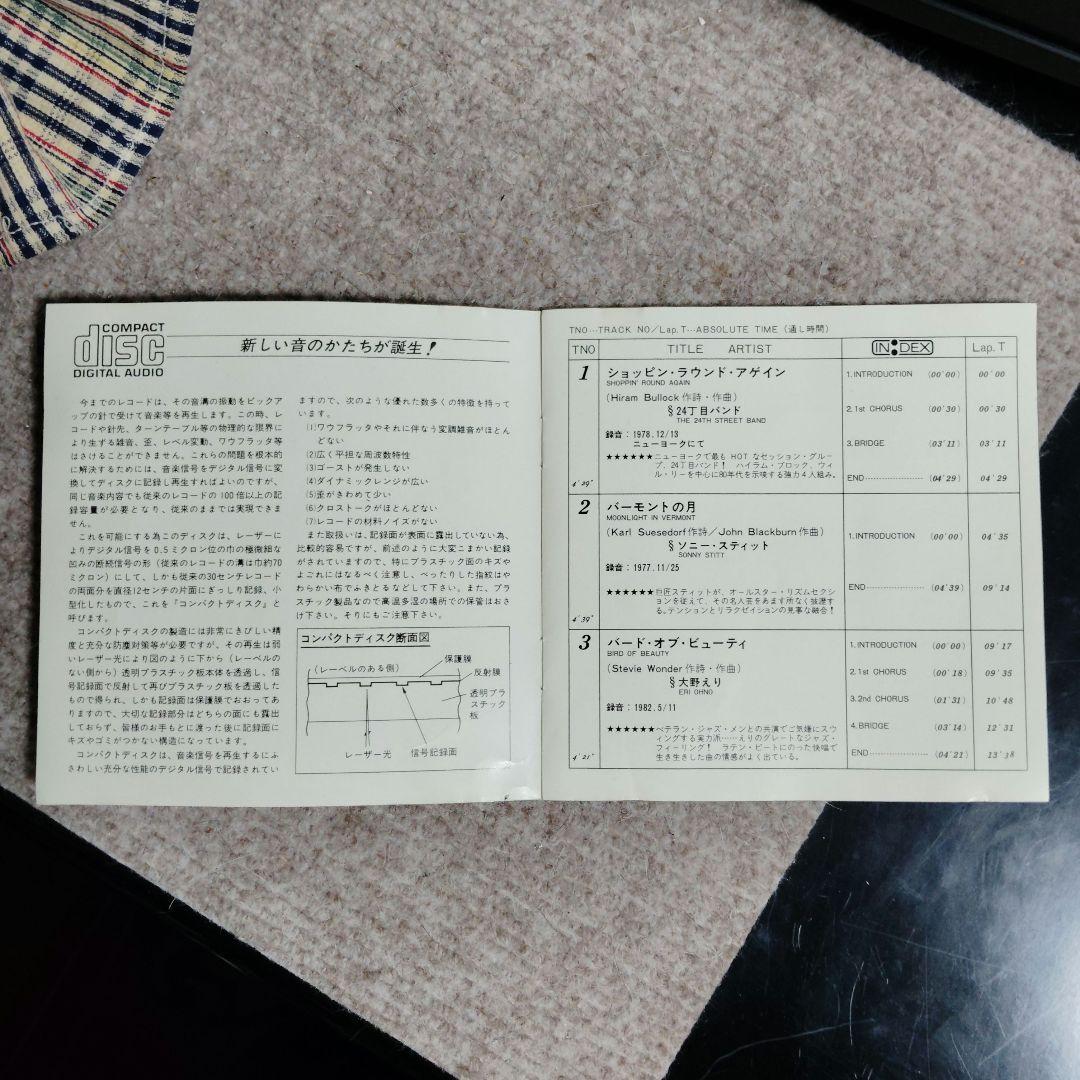 COMPACT
disc
DIGITAL AUDIO
新しい音のかたちが誕生!
今までのレコードは、その音溝の振動をピックア
ップの針で受けて音楽等を再生します。この時、レ
コードや針先、ターンテーブル等の物理的な限界に
より生ずる雑音、歪、レベル変動、ワウフラッタ等
はさけることができません。これらの問題を根本的
に解決するためには、音楽信号をデジタル信号に変
換してディスクに記録し再生すればよいのですが、
同じ音楽内容でも従来のレコードの100倍以上の記
録容量が必要となり、従来のままでは実現できま
せん。
これを可能にする為このディスクは、レーザーに
よりデジタル信号を0.5ミクロン位の巾の極微細な
凹みの断続信号の形(従来のレコードの溝は巾約70
ミクロン)にして、しかも従来の30センチレコード
の両面分を直径12センチの片面にぎっしり記録、小
型化したもので、これを『コンパクトディスク』と
呼びます。
コンパクトディスクの製造には非常にきびしい精
度と充分な防塵対策等が必要ですが、その再生は弱
いレーザー光により図のように下から(レーベルの
ない側から)透明プラスチック板本体を透過し、信
号記録面で反射して再びプラスチック板を透過した
もので得られ、しかも記録面は保護膜でおおってあ
りますので、大切な記録部分はどちらの面にも露出
しておらず、皆様のお手もとに渡った後に記録面に
キズやゴミがつかない構造になっています。
コンパクトディスクは、音楽信号を再生するにふ
さわしい充分な性能のデジタル信号で記録されてい
ますので、次のような優れた数多くの特徴を持って
います。
(1)ワウフラッタやそれに伴なう変調雑音がほとん
どない
(2)広く平担な周波数特性
(3)ゴーストが発生しない
(4)ダイナミックレンジが広い
(5)歪がきわめて少い
(6)クロストークがほとんどない
(7)レコードの材料ノイズがない
また取扱いは、記録面が表面に露出していない為、
比較的容易ですが、前述のように大変こまかい記録
がされていますので、特にプラスチック面のキズや
よごれにはなるべく注意し、べったりした指紋はや
わらかい布でふきとるなどして下さい。また、プラ
スチック製品なので高温多湿の場所での保管はおさ
け下さい。そりにもご注意下さい。
コンパクトディスク断面図
(レーベルのある側)
保護膜
反射膜
透明プラ
スチック
板
レーザー光
信号記録面
TNO…TRACK NO/Lap.T…ABSOLUTE TIME(通し時間)
TNO TITLE ARTIST INDEX Lap.T
1 ショッピン・ラウンド・アゲイン
SHOPPIN' ROUND AGAIN
(Hiram Bullock作詩・作曲)
§24丁目バンド
THE 24TH STREET BAND
録音:1978.12/13
ニューヨークにて
★★★★★★ニューヨークで最も HOT なセッション・グルー
プ、24丁目バンド! ハイラム・ブロック、ウィ
ル・リーを中心に80年代を示唆する強力4人組。
4'29"
1.INTRODUCTION (00'00) 00'00
2.1st CHORUS (00'30) 00'30
3.BRIDGE (03'11) 03'11
END (04'29) 04'29
2 バーモントの月
MOONLIGHT IN VERMONT
(Karl Suesedorf作詩/John Blackburn作曲)
§ソニー・スティット
SONNY STITT
録音:1977.11/25
★★★★★★巨匠スティットが、オールスター・リズムセクショ
ンを従えて、その名人芸をあます所なく披瀝す
る。テンションとリラクゼイションの見事な融合!
4'39"
1.INTRODUCTION (00'00) 04'35
END (04'39) 09'14
3 バード・オブ・ビューティ
BIRD OF BEAUTY
(Stevie Wonder作詩・作曲)
§大野えり
ERI OHNO
録音:1982.5/11
★★★★★★ベテラン・ジャズ・メンとの共演でご気嫌にスウ
ィングする実力派……えりのグレートなジャズ・
フィーリング! ラテン・ビートにのった快唱で
生き生きした曲の情感がよく出ている。
4'21"
1.INTRODUCTION (00'00) 09'17
2.1st CHORUS (00'18) 09'35
3.2nd CHORUS (01'31) 10'48
4.BRIDGE (03'14) 12'31
END (04'21) 13'38